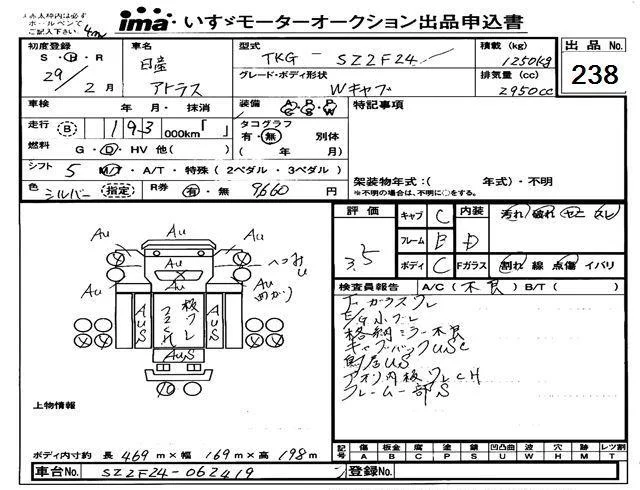 ※赤太枠内は必ず
ボールペンで
ご記入下さい
4m
ima・いすゞモーターオークション出品申込書
初度登録 車名 型式 積載 (kg) 出品No.
S・H・R 日産 TKG - SZ2F24 1250kg
29年2月 アトラス グレード・ボディ形状 排気量 (cc) 238
Wキャブ 2950cc
車検 年 月・抹消 装備 特記事項
走行 B 193 000km「 」 タコグラフ
有・無 別体
燃料 G・D・HV 他( ) ( 年 月)
シフト 5 M/T・A/T・特殊 (2ペダル・3ペダル) 架装物年式:( 年式)・不明
※不明の場合は、不明に○をする。
色 シルバー 指定 R券 有・無 9,660 円
評価 キャブ C 内装 汚れ 破れ
3.5 フレーム B D
ボディ C Fガラス 割れ 線 点傷 イバリ
検査員報告 A/C( 不良 ) B/T( )
Fガラスワレ
E/G小ブレ
格納ミラー不良
キャブバックUSC
鳥居US
アオリ内板ワレCH
フレーム一部S
Au Au
Au へっこみ
Au U
Au Au
AUS AUS
板ワレ
AUS
上物情報
ボディ内寸約 長 469m×幅 169m×高 198m
記号 傷 板金 腐 塗 錆 凹凸曲 波 穴 熱 M T レツ割
A B C P S U W H X M T
車台No. SZ2F24-062419 登録No.